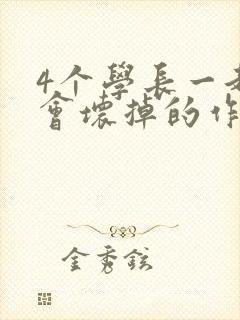 4个學長一
會壞掉的作
金秀鉉